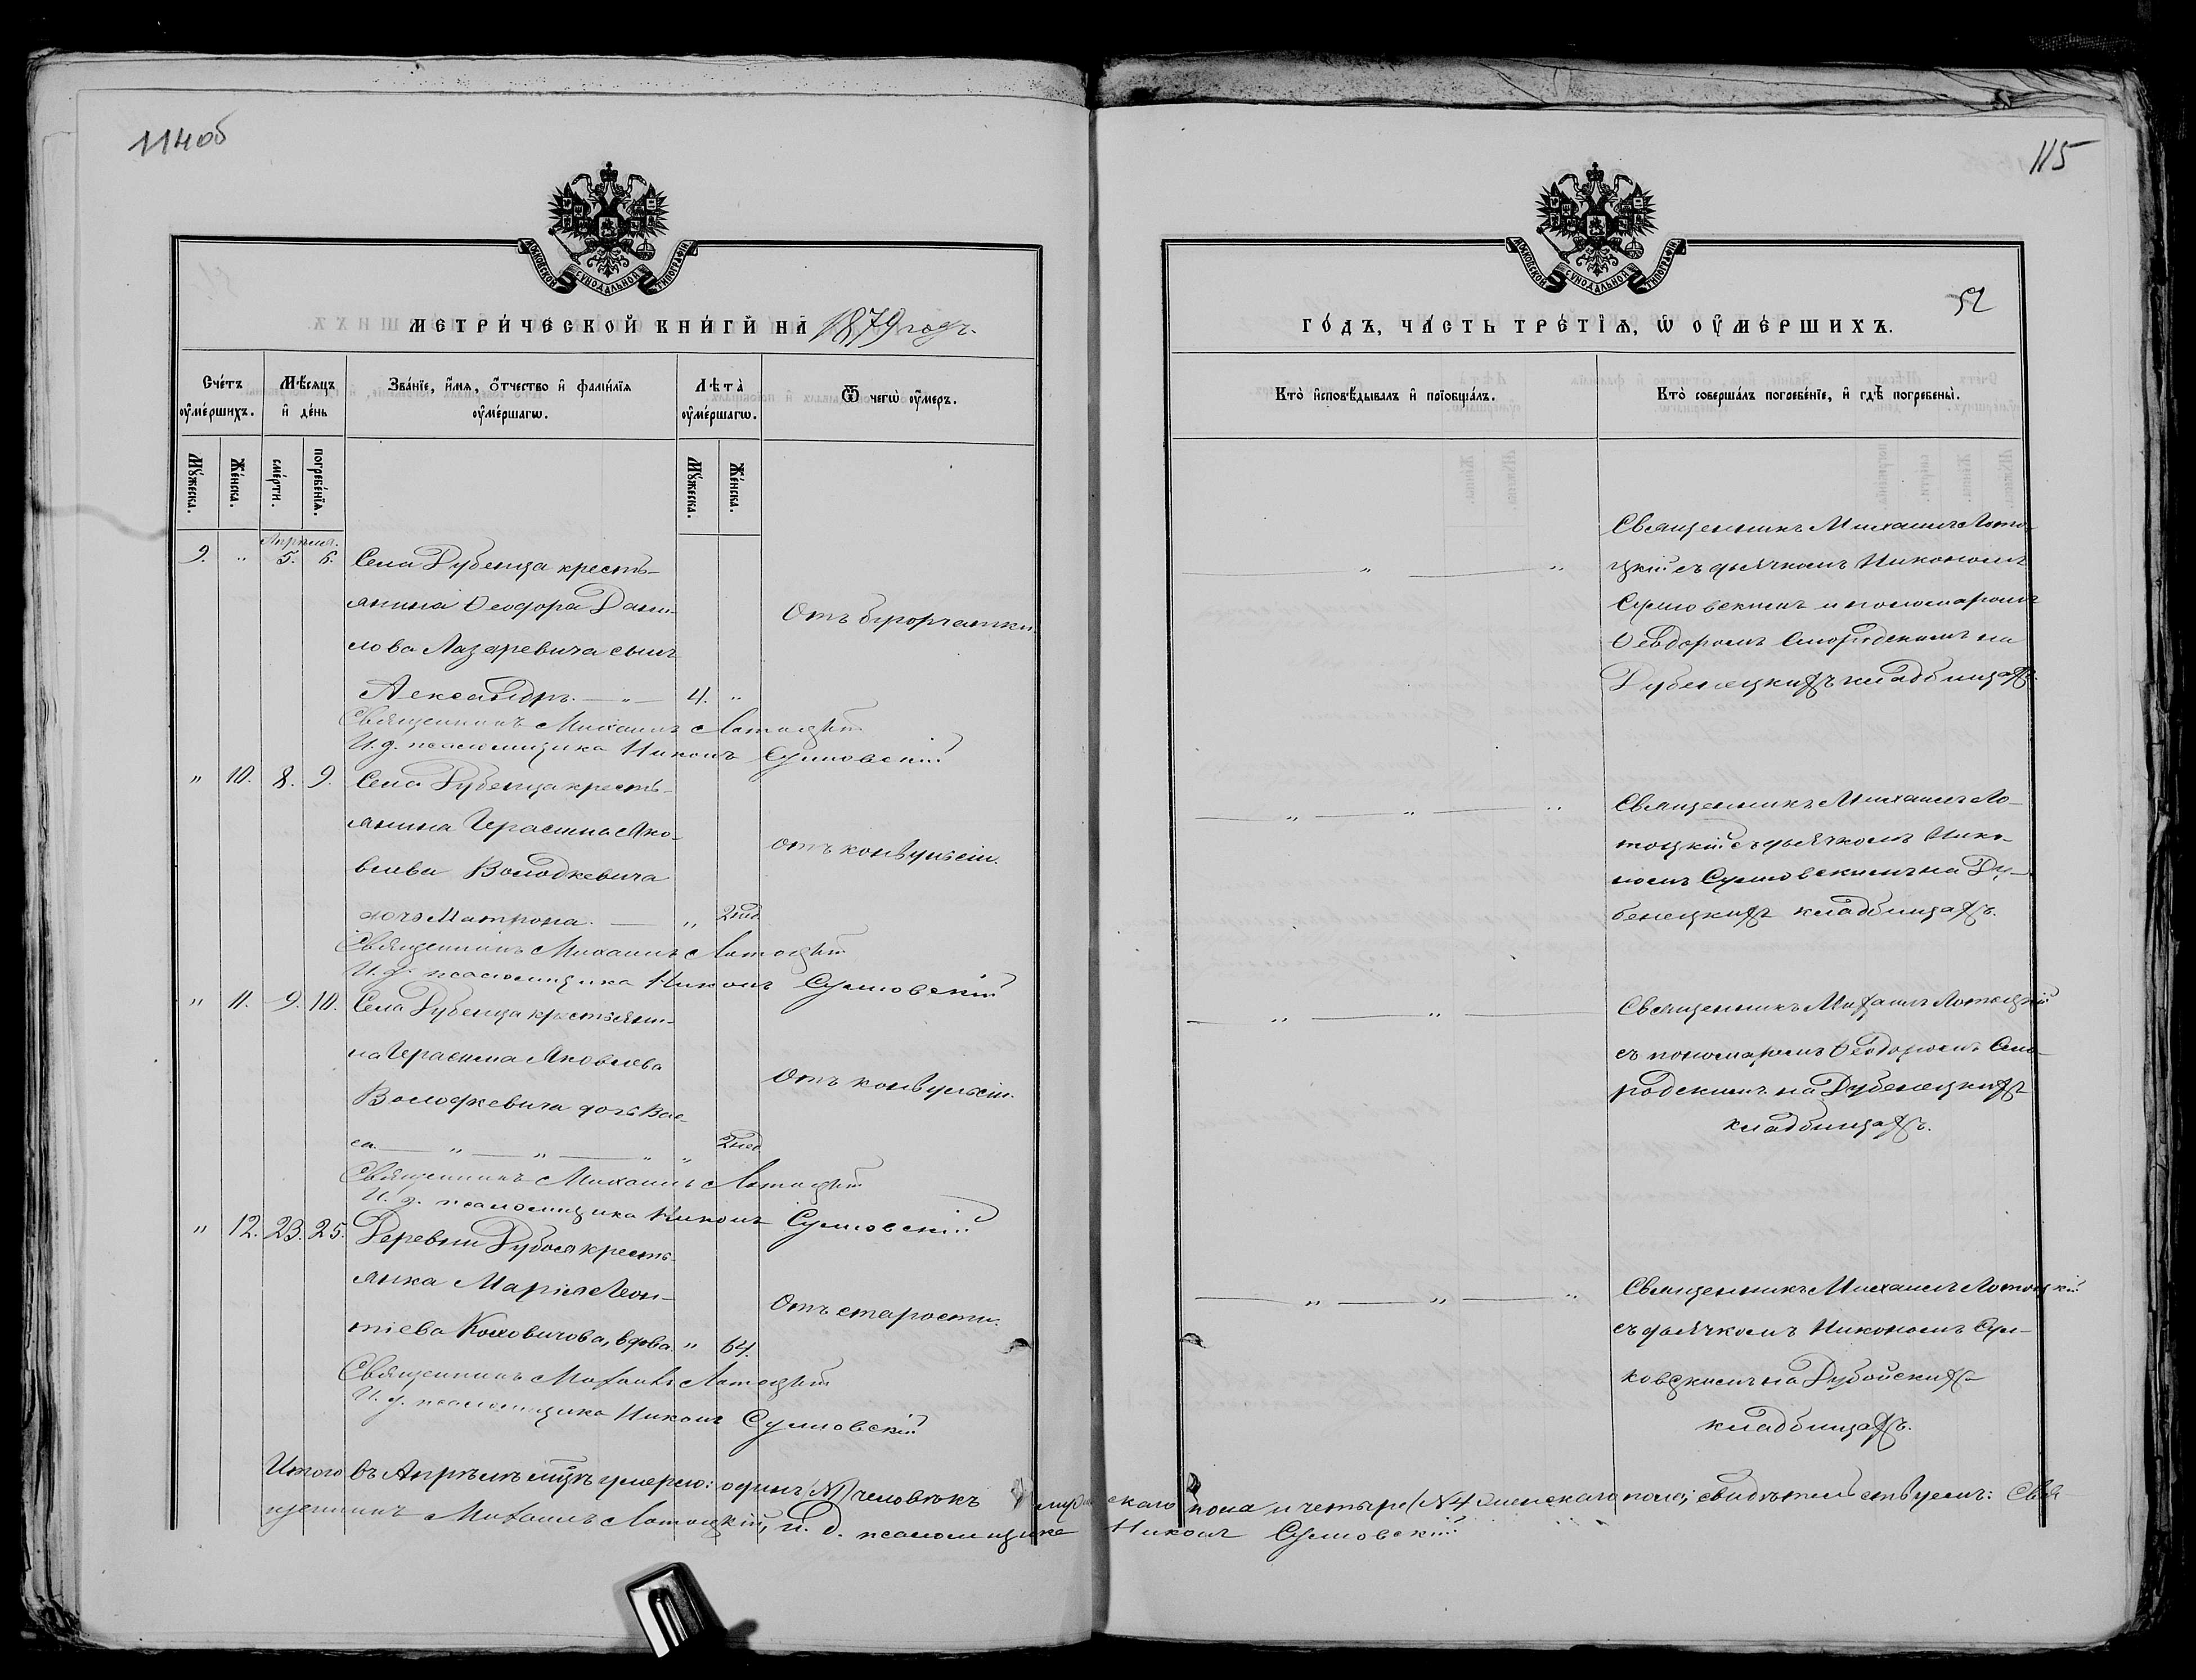 114 об
МОСКОВСКОЙ СѴНОДАЛЬНОЙ ТИПОГРАФІИ
МЕТРИ́ЧЕСКОЙ КНИ́ГИ НА 1879 годъ.
Сче́тъ оу҆ме́ршихъ.
Мѣ́сяцъ и҆ де́нь
Зва́нїе, и҆́мя, ѻ҆́тчество и҆ фамі́лїя оу҆ме́ршагѡ.
Лѣта̀ оу҆ме́ршагѡ.
Ѿ чегѡ̀ оу҆́меръ.
Мꙋ́жеска.
Же́нска.
сме́рти.
погребе́нїя.
Мꙋ́жеска.
Же́нска.
Апрель.
9. " 5. 6. Села Дубенца кресть-
янина Ѳеодора Дани-
лова Лазаревича сынъ
Александръ. — " — 4. "
Отъ
Священникъ Михаилъ Лотоцкій
И. д. псаломщика Никонъ Сулковскій
" 10. 8. 9. Села Дубенца кресть-
янина Герасима Яко-
влева Володкевича
дочь Матрона. — " 2 нед.
отъ конвульсіи.
Священникъ Михаилъ Лотоцкій
И. д. псаломщика Никонъ Сулковскій
" 11. 9. 10. Села Дубенца крестьяни-
на Герасима Яковлева
Володкевича дочь Вас-
са. — " — " — " " 2 нед.
Отъ конвульсіи.
Священникъ Михаилъ Лотоцкій
И. д. псаломщика Никонъ Сулковскій
" 12. 23. 25. Деревни Дубоя кресть-
янка Марія Леон-
тіева вдова. " 64.
Отъ старости.
Священникъ Михаилъ Лотоцкій
И. д. псаломщика Никонъ Сулковскій
Итого въ Апрѣлѣ мцѣ умерло: одинъ (№ 1) человѣкъ мужескаго пола и четыре (№ 4 женскаго пола; свидѣтельствуемъ: Свя-
щенникъ Михаилъ Лотоцкій, и. д. псаломщика Никонъ Сулковскій
115
МОСКОВСКОЙ СѴНОДАЛЬНОЙ ТИПОГРАФІИ
52
ГО́ДЪ, ЧА́СТЬ ТРЕ́ТЇЯ, Ѡ҆ ОУ҆МЕ́РШИХЪ.
Кто̀ и҆сповѣ́дывалъ и҆ прїобща́лъ.
Кто̀ соверша́лъ погребе́нїе, и҆ гдѣ̀ погребены̀.
Священникъ Михаилъ Лото-
цкій съ дьячкомъ Никономъ
Сулковскимъ и пономаромъ
Ѳеодоромъ Смородскимъ на
Дубенецкихъ кладбищахъ.
Священникъ Михаилъ Ло-
тоцкій съ дьячкомъ Нико-
номъ Сулковскимъ на Ду-
бенецкихъ кладбищахъ.
Священникъ Михаилъ Лотоцкій
съ пономаромъ Ѳеодоромъ Смо-
родскимъ на Дубенецкихъ
кладбищахъ.
Священникъ Михаилъ Лотоцкій
съ дьячкомъ Никономъ Сул-
ковскимъ на Дубойскихъ
кладбищахъ.